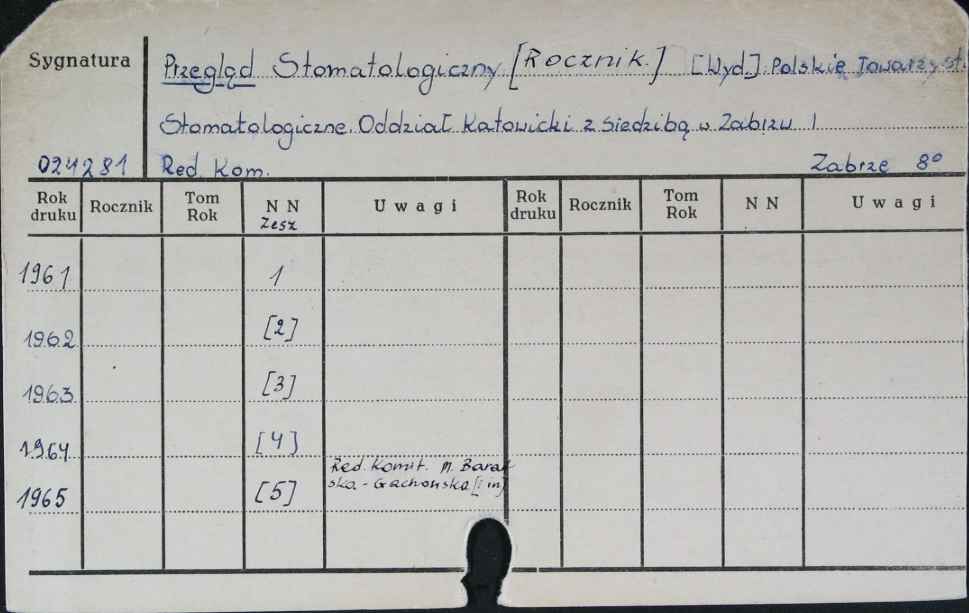 Sygnatura
Przegląd Stomatologiczny [Rocznik.] [Wyd.] Polskie Towarzyst.
Stomatologiczne. Oddział Katowicki z siedzibą w Zabrzu
024281 Red. Kom. Zabrze 8°
Rok druku Rocznik Tom Rok NN Zesz Uwagi Rok druku Rocznik Tom Rok NN Uwagi
1961 1
1962 [2]
1963 [3]
1964 [4]
Red. Komit. M. Barań-
ska-Gachowska [i in]
1965 [5]